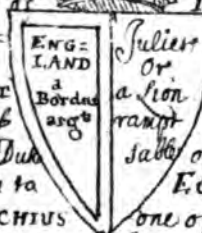 ENG=
LAND
a
Bordur
argt
Juliers
Or
a lion
rampt
sable
Duke
to
CHIUS
one o